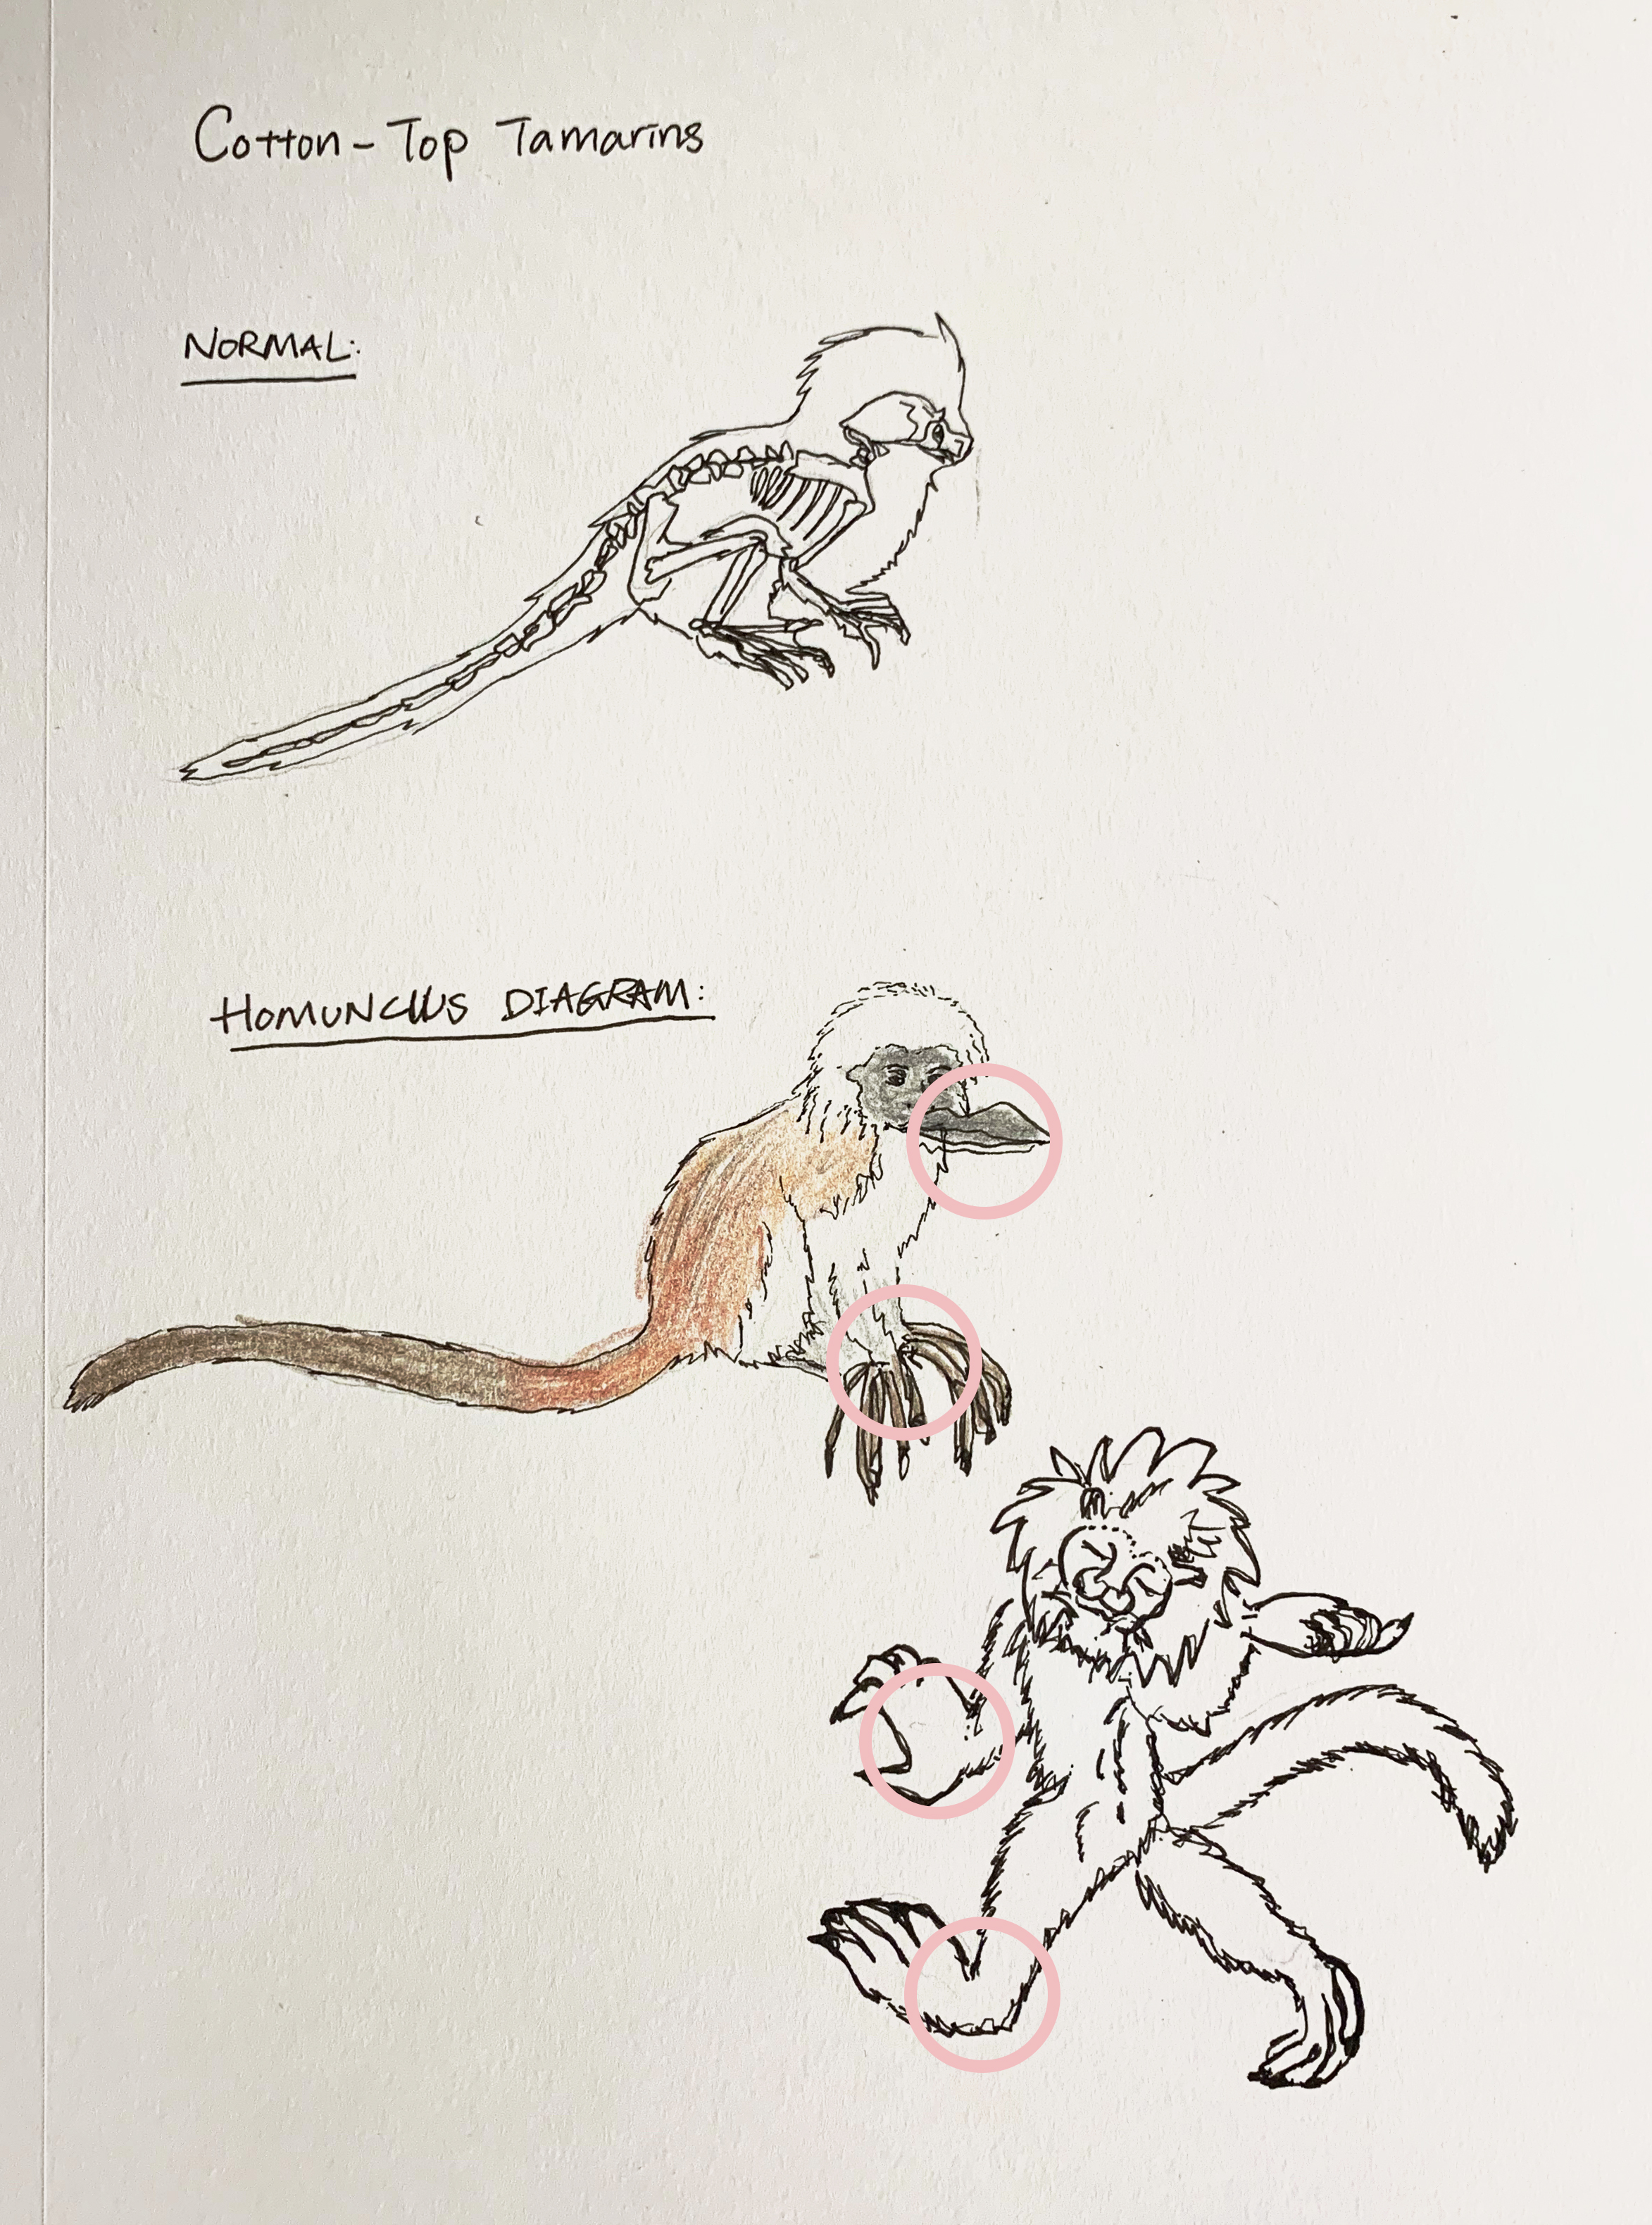 Cotton-Top Tamarins
NORMAL:
HOMUNCLUS DIAGRAM: